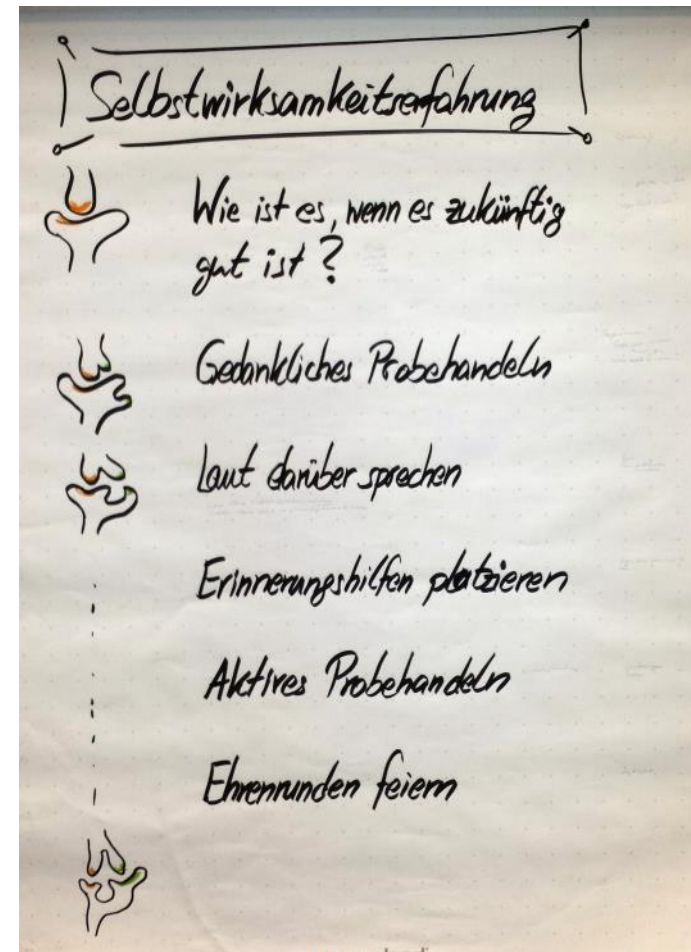 Selbstwirksamkeitserfahrung
Wie ist es, wenn es zukünftig
gut ist?
Gedankliches Probehandeln
Laut darüber sprechen
Erinnerungshilfen platzieren
Aktives Probehandeln
Ehrenrunden feiern